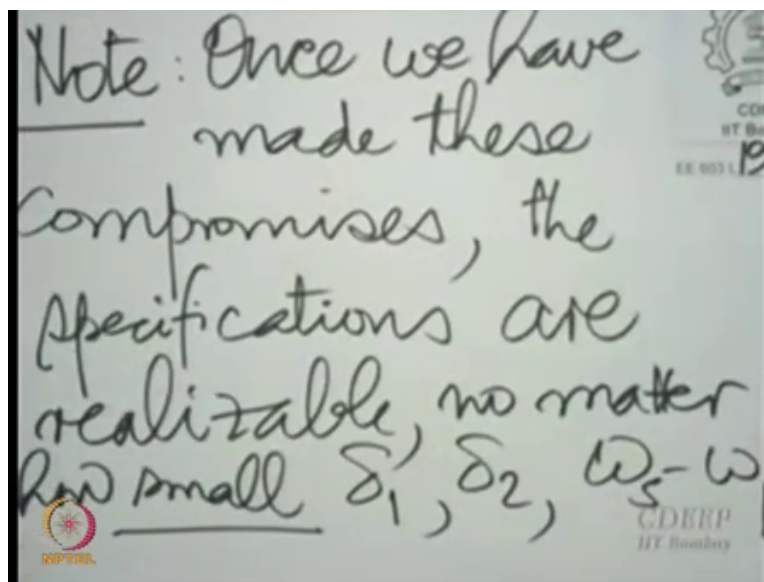 Note: Once we have
made these
compromises, the
specifications are
realizable, no matter
how small δ₁, δ₂, ω_s - ω
EE 603 L 19
NPTEL
CDEEP
IIT Bombay